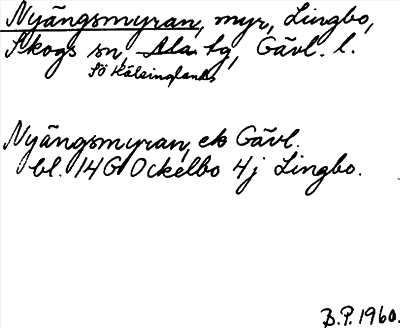 Nyängsmyran, myr, Lingbo,
Skogs sn, Ala tg, Gävl. l.
Sö Hälsinglands
Nyängsmyran, ek Gävl.
bl. 14G Ockelbo 4j Lingbo.
B.P. 1960.